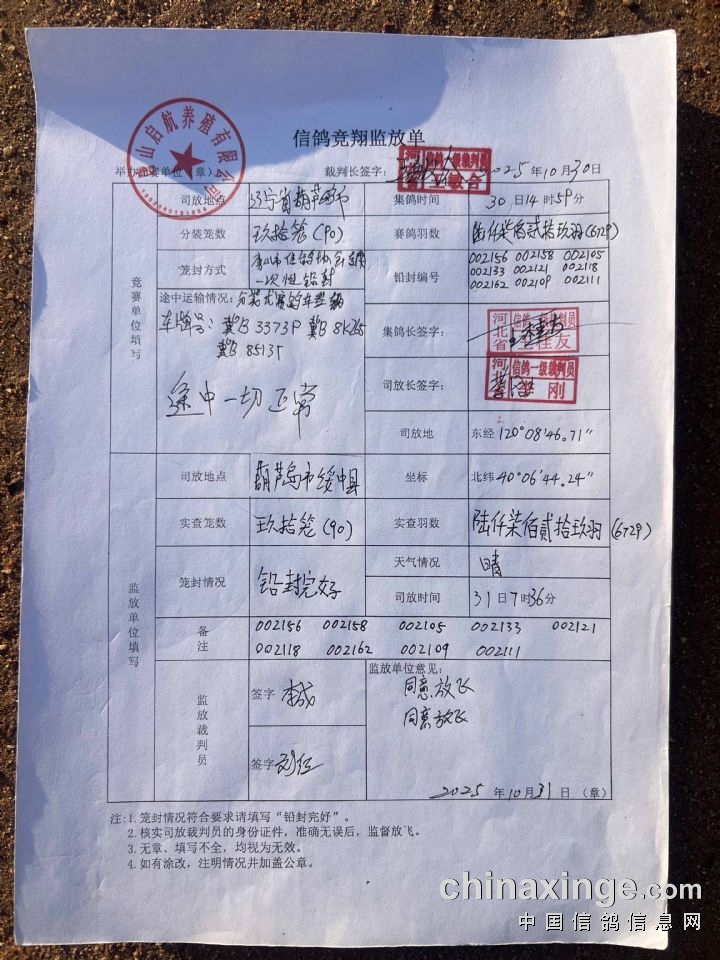 信鸽竞翔监放单
山启航养殖有限公司
举办竞赛单位(章)
裁判长签字:
2025年10月30日
竞赛单位填写
司放地点 辽宁省葫芦岛市
集鸽时间 30日14时59分
分装笼数 玖拾笼(90)
赛鸽羽数 陆仟柒佰贰拾玖羽(6729)
笼封方式
一次性铅封
铅封编号
002156 002158 002105
002133 002121 002118
002162 002109 002111
途中运输情况:
车牌号:冀B 3373P 冀B 8K265
冀B 8513T
途中一切正常
集鸽长签字:
河北省 信鸽一级裁判员
佳友
司放长签字:
河北 信鸽一级裁判员
刚
司放地 东经 120°08′46.71″
监放单位填写
司放地点 葫芦岛市绥中县
坐标 北纬 40°06′44.24″
实查笼数 玖拾笼(90)
实查羽数 陆仟柒佰贰拾玖羽(6729)
笼封情况 铅封完好
天气情况 晴
司放时间 31日7时36分
备注
002156 002158 002105 002133 002121
002118 002162 002109 002111
监放裁判员
签字
签字
监放单位意见:
同意放飞
同意放飞
2025年10月31日(章)
注:1. 笼封情况符合要求请填写“铅封完好”。
2. 核实司放裁判员的身份证件,准确无误后,监督放飞。
3. 无章、填写不全,均视为无效。
4. 如有涂改,注明情况并加盖公章。
chinaxinge.com
中国信鸽信息网